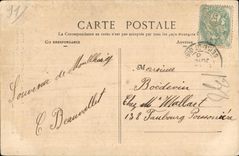 CARTE POSTALE
La Correspondance au recto n'est pas acceptée par tous les pays étrangers
CORRESPONDANCE
ADRESSE
Souvenir de Montlhéry
C. Beauvallet
Monsieur
Boëdevin
Chez Mr Wollart
138 Faubourg Poissonnière